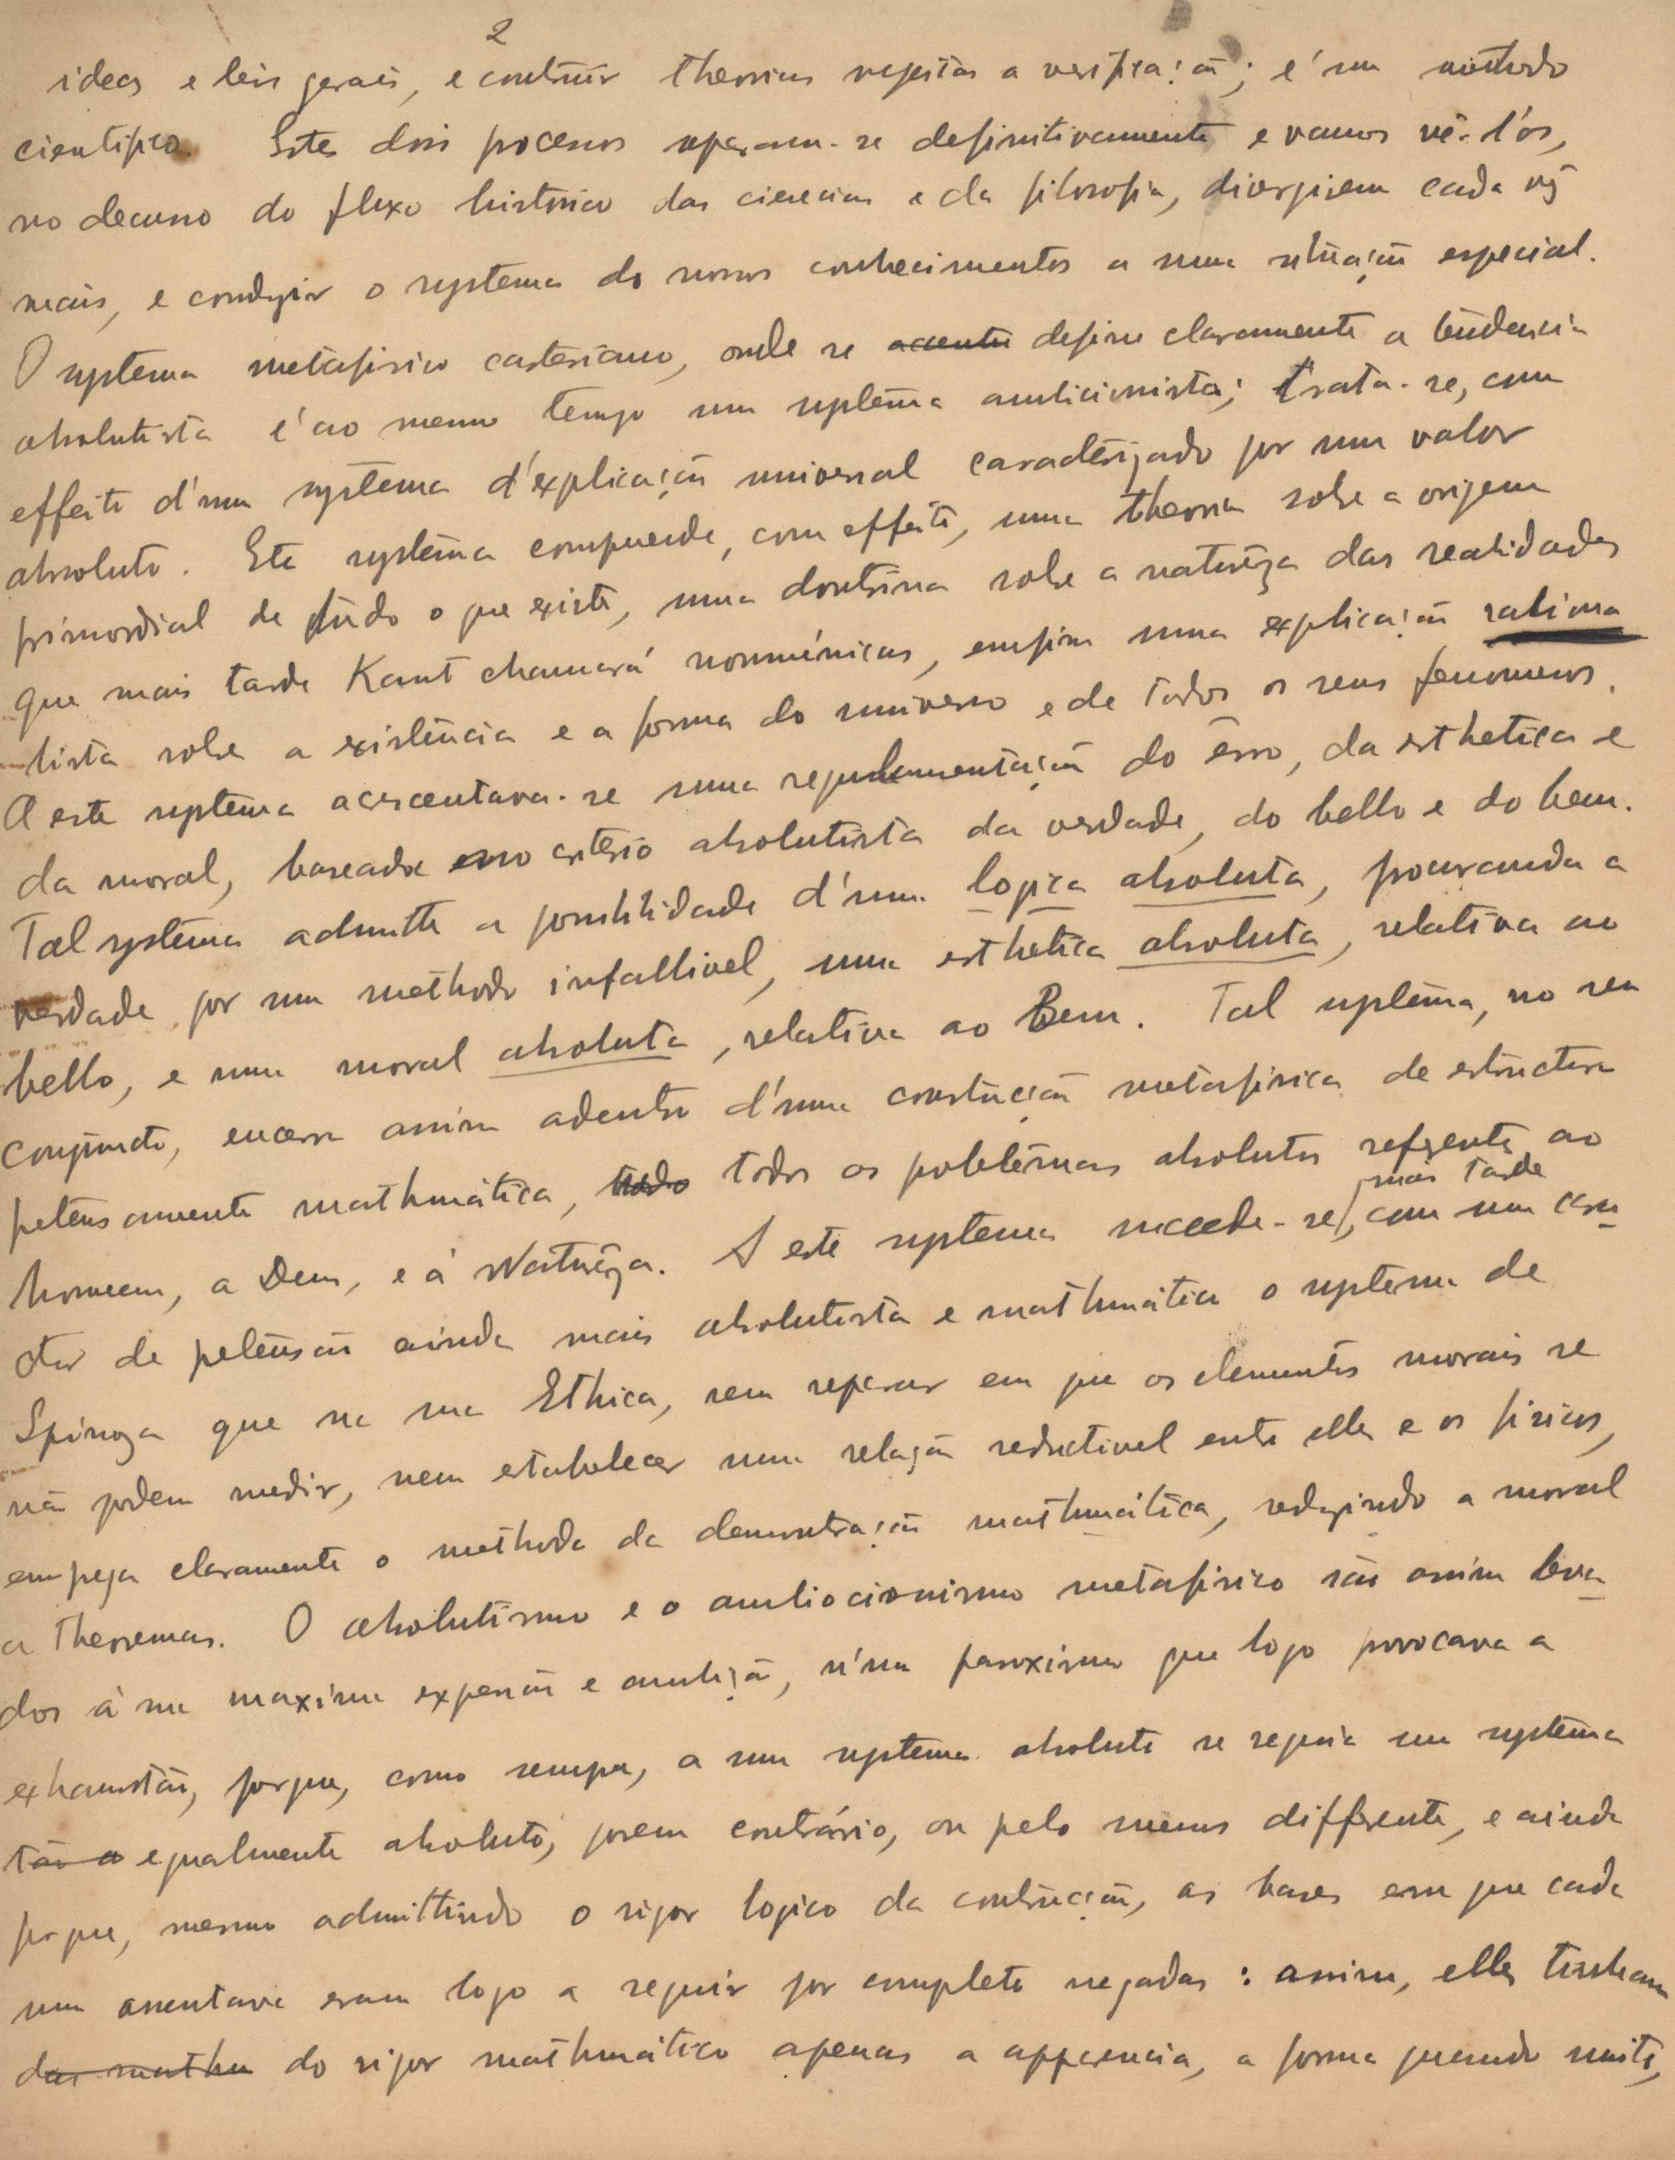 2
ideas e leis gerais, e contruir theorias sujeitas a verificação; é um méthodo
cientifico. Estes dois processos separam-se definitivamente e vamos vê-l'os,
no decurso do fluxo historico das ciencias e da filosofia, divergirem cada vez
mais, e conduzir o systema do nossos conhecimentos a uma situação especial.
O systema metafisico cartesiano, onde se accentu define claramente a tendencia
absolutista é ao mesmo tempo um systema ambicionista; trata-se, com
effeito d'um systema d'explicação universal caracterizado por um valor
absoluto. Este systema comprende, com effeito, uma theoria sobre a origem
primordial de tudo o que existe, uma doutrina sobre a natureza das realidades
que mais tarde Kant chamará nouménicas, emfim uma explicação raciona
lista sobre a existência e a forma do universo e de todos os seus fenomenos.
A este systema acrescentava-se uma regulamentação do erro, da esthetica e
da moral, baseada no critério absolutista da verdade, do bello e do bem.
Tal systema admitte a possibilidade d'uma logica absoluta, procurando a
verdade por um methodo infallivel, uma esthetica absoluta, relativa ao
bello, e uma moral absoluta, relativa ao Bem. Tal systema, no seu
conjuncto, encerra assim adentro d'uma construção metafisica de estructura
pretensamente mathmática, todo todos os problemas absolutos referentes ao
homem, a Deus, e á Natureza. A este systema succede-se, mais tarde com um cara
cter de pretensão ainda mais absolutista e mathmática o systema de
Spinoza que na sua Ethica, sem reparar em que os elementos morais se
não podem medir, nem estabelecer uma relação reductivel entre elles e os fisicos,
emprega claramente o methodo da demonstração mathmática, reduzindo a moral
a theoremas. O absolutismo e o ambiocionismo metafisico são assim leva
dos á sua maxima expansão e ambição, n'um paroxismo que logo provocava a
exhaustão, porque, como sempre, a um systema absoluto se seguia um systema
tão a egualmente absoluto, porem contrário, ou pelo menos differente, e ainda
porque, mesmo admittindo o rigor logico da contrução, as bases em que cada
um assentava eram logo a seguir por completo negadas: assim, elles tinham
das mathe do rigor mathmático apenas a apparencia, a forma quando muito,